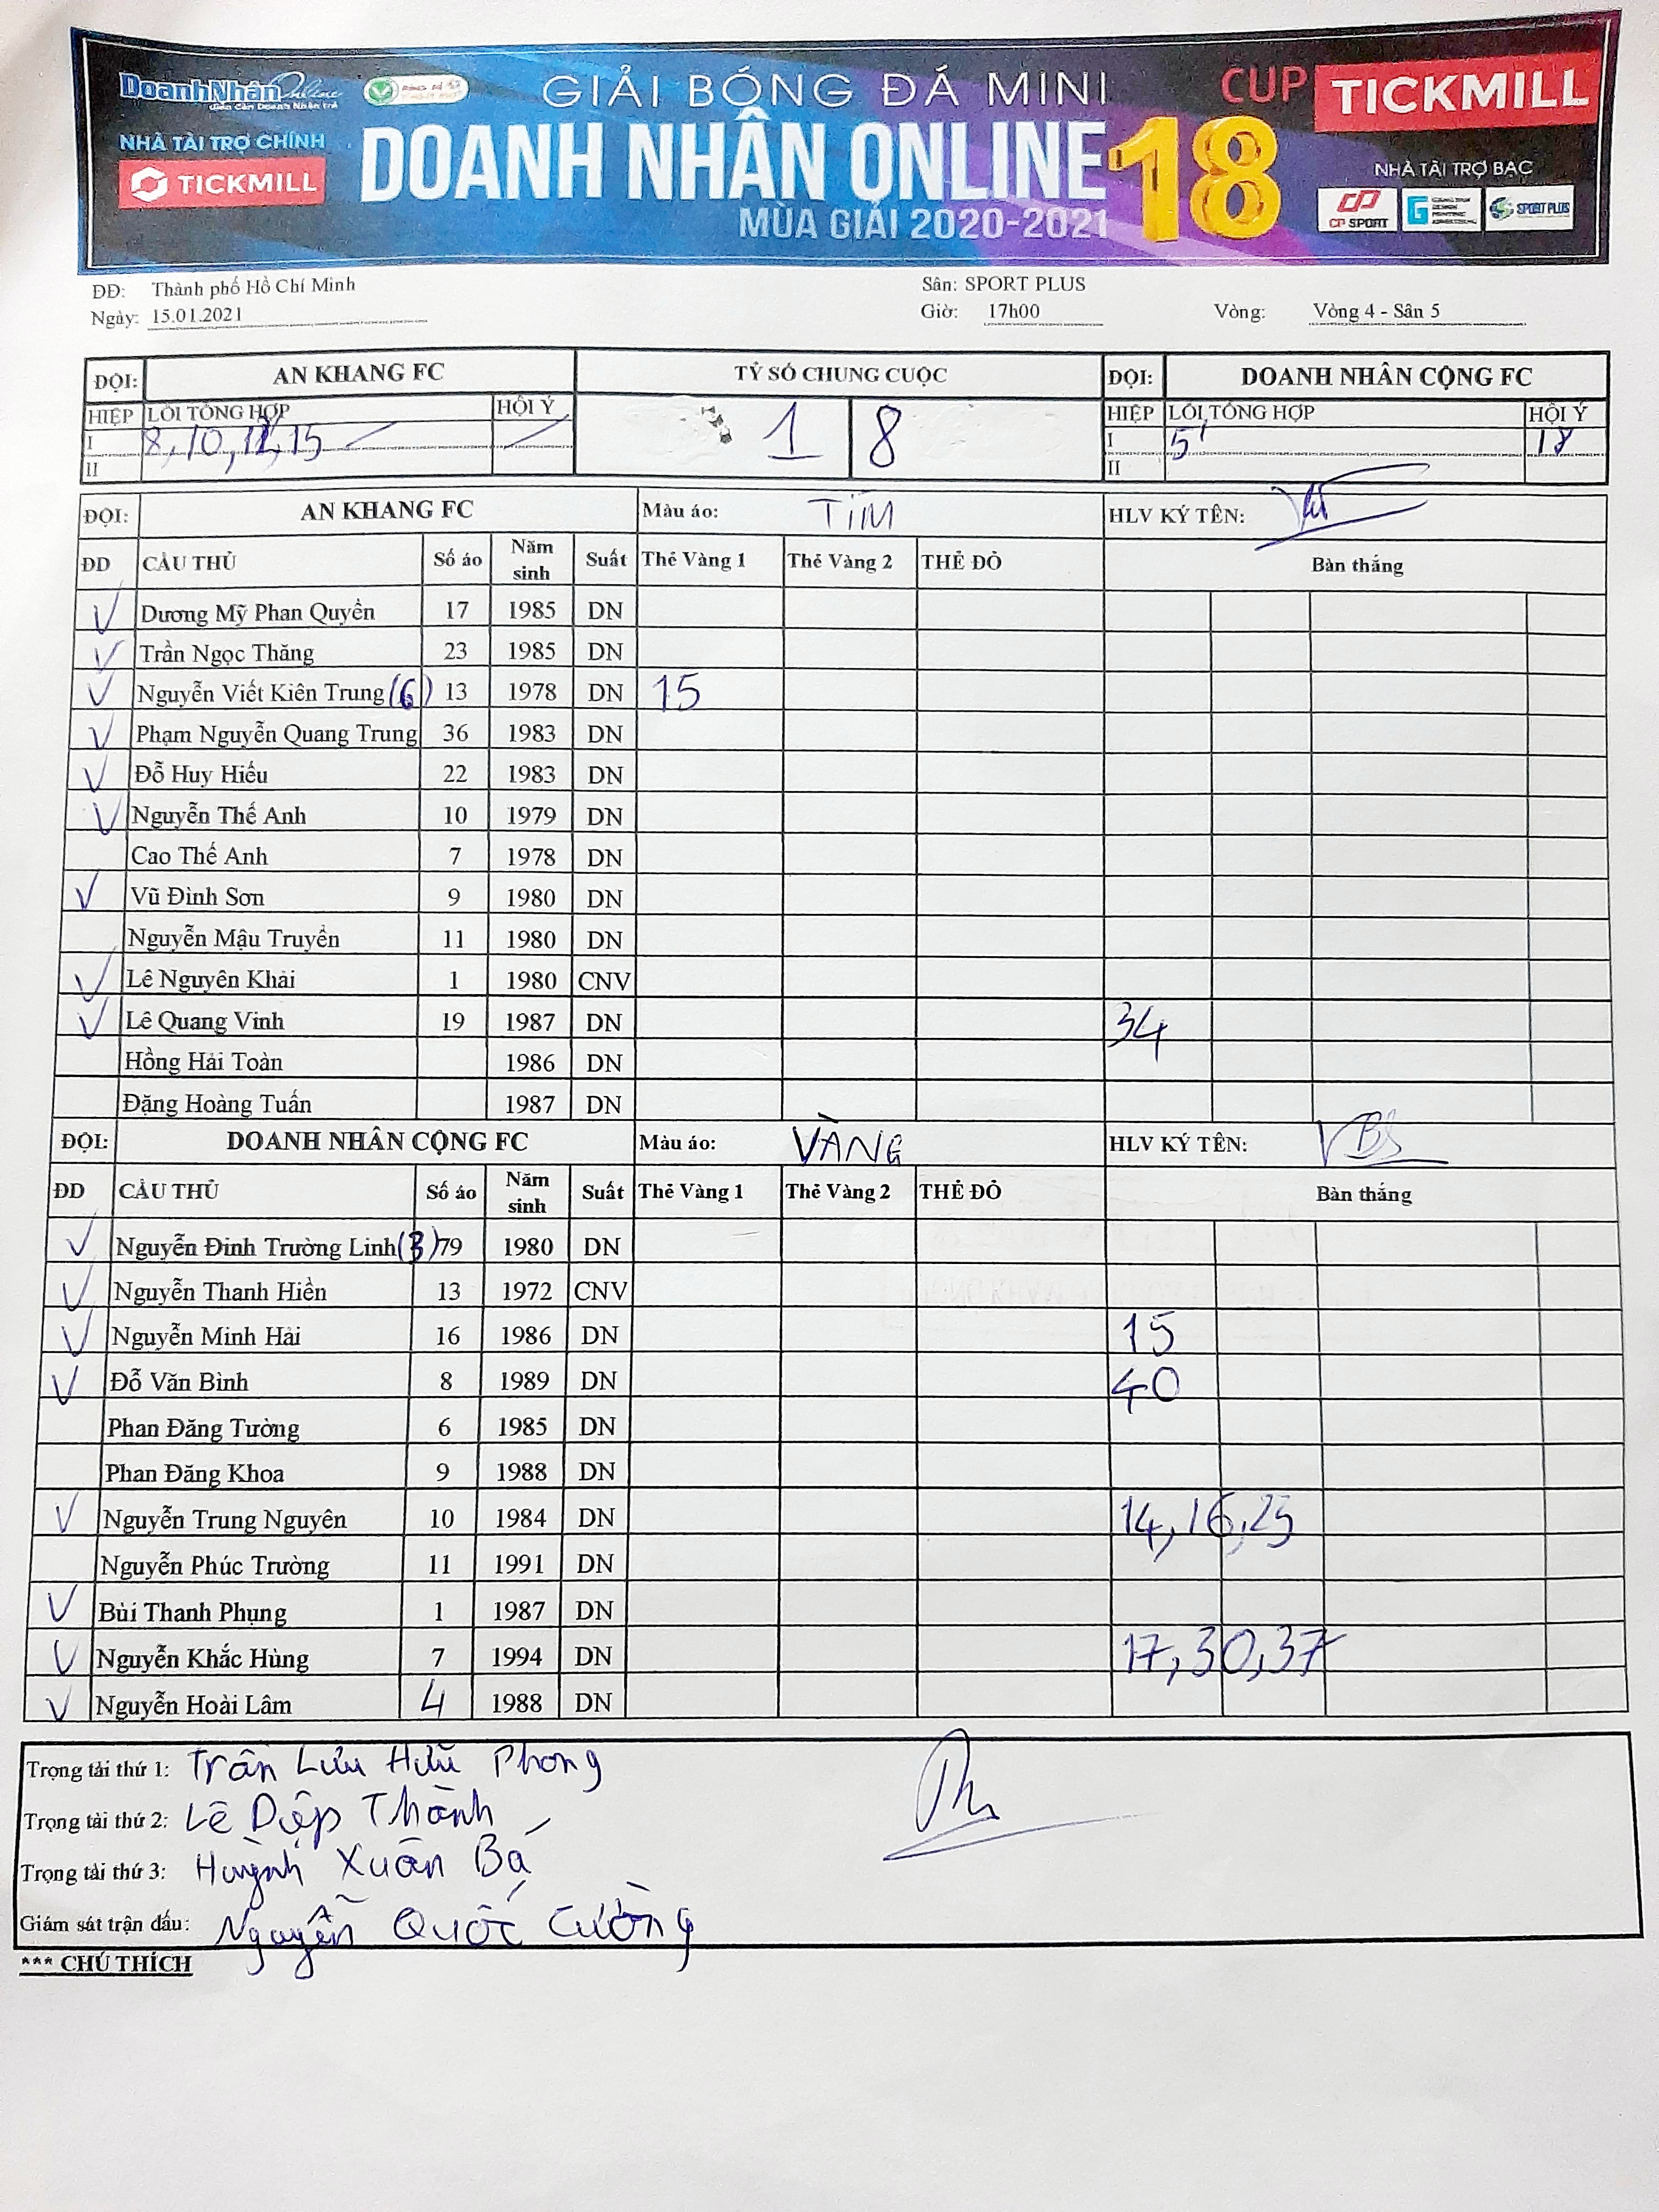 DoanhNhânOnline
GIẢI BÓNG ĐÁ MINI
CUP TICKMILL
NHÀ TÀI TRỢ CHÍNH
TICKMILL
DOANH NHÂN ONLINE 18
MÙA GIẢI 2020-2021
NHÀ TÀI TRỢ BẠC
CP SPORT
SPORT PLUS
ĐĐ: Thành phố Hồ Chí Minh Sân: SPORT PLUS
Ngày: 15.01.2021 Giờ: 17h00 Vòng: Vòng 4 - Sân 5
ĐỘI: AN KHANG FC TỶ SỐ CHUNG CUỘC ĐỘI: DOANH NHÂN CỘNG FC
HIỆP LỖI TỔNG HỢP HỘI Ý 1 8 HIỆP LỖI TỔNG HỢP HỘI Ý
I 8, 10, 12, 15 I 5' 18
II II
ĐỘI: AN KHANG FC Màu áo: TÍM HLV KÝ TÊN:
ĐD CẦU THỦ Số áo Năm sinh Suất Thẻ Vàng 1 Thẻ Vàng 2 THẺ ĐỎ Bàn thắng
V Dương Mỹ Phan Quyền 17 1985 DN
V Trần Ngọc Thăng 23 1985 DN
V Nguyễn Viết Kiên Trung (6) 13 1978 DN 15
V Phạm Nguyễn Quang Trung 36 1983 DN
V Đỗ Huy Hiếu 22 1983 DN
V Nguyễn Thế Anh 10 1979 DN
Cao Thế Anh 7 1978 DN
V Vũ Đình Sơn 9 1980 DN
Nguyễn Mậu Truyền 11 1980 DN
V Lê Nguyên Khải 1 1980 CNV
V Lê Quang Vinh 19 1987 DN 34
Hồng Hải Toàn 1986 DN
Đặng Hoàng Tuấn 1987 DN
ĐỘI: DOANH NHÂN CỘNG FC Màu áo: VÀNG HLV KÝ TÊN:
ĐD CẦU THỦ Số áo Năm sinh Suất Thẻ Vàng 1 Thẻ Vàng 2 THẺ ĐỎ Bàn thắng
V Nguyễn Đình Trường Linh (3) 79 1980 DN
V Nguyễn Thanh Hiền 13 1972 CNV
V Nguyễn Minh Hải 16 1986 DN 15
V Đỗ Văn Bình 8 1989 DN 40
Phan Đăng Tường 6 1985 DN
Phan Đăng Khoa 9 1988 DN
V Nguyễn Trung Nguyên 10 1984 DN 14, 16, 25
Nguyễn Phúc Trường 11 1991 DN
V Bùi Thanh Phụng 1 1987 DN
V Nguyễn Khắc Hùng 7 1994 DN 17, 30, 37
V Nguyễn Hoài Lâm 4 1988 DN
Trọng tài thứ 1: Trần Lưu Hữu Phong
Trọng tài thứ 2: Lê Diệp Thành
Trọng tài thứ 3: Huỳnh Xuân Bá
Giám sát trận đấu: Nguyễn Quốc Cường
*** CHÚ THÍCH